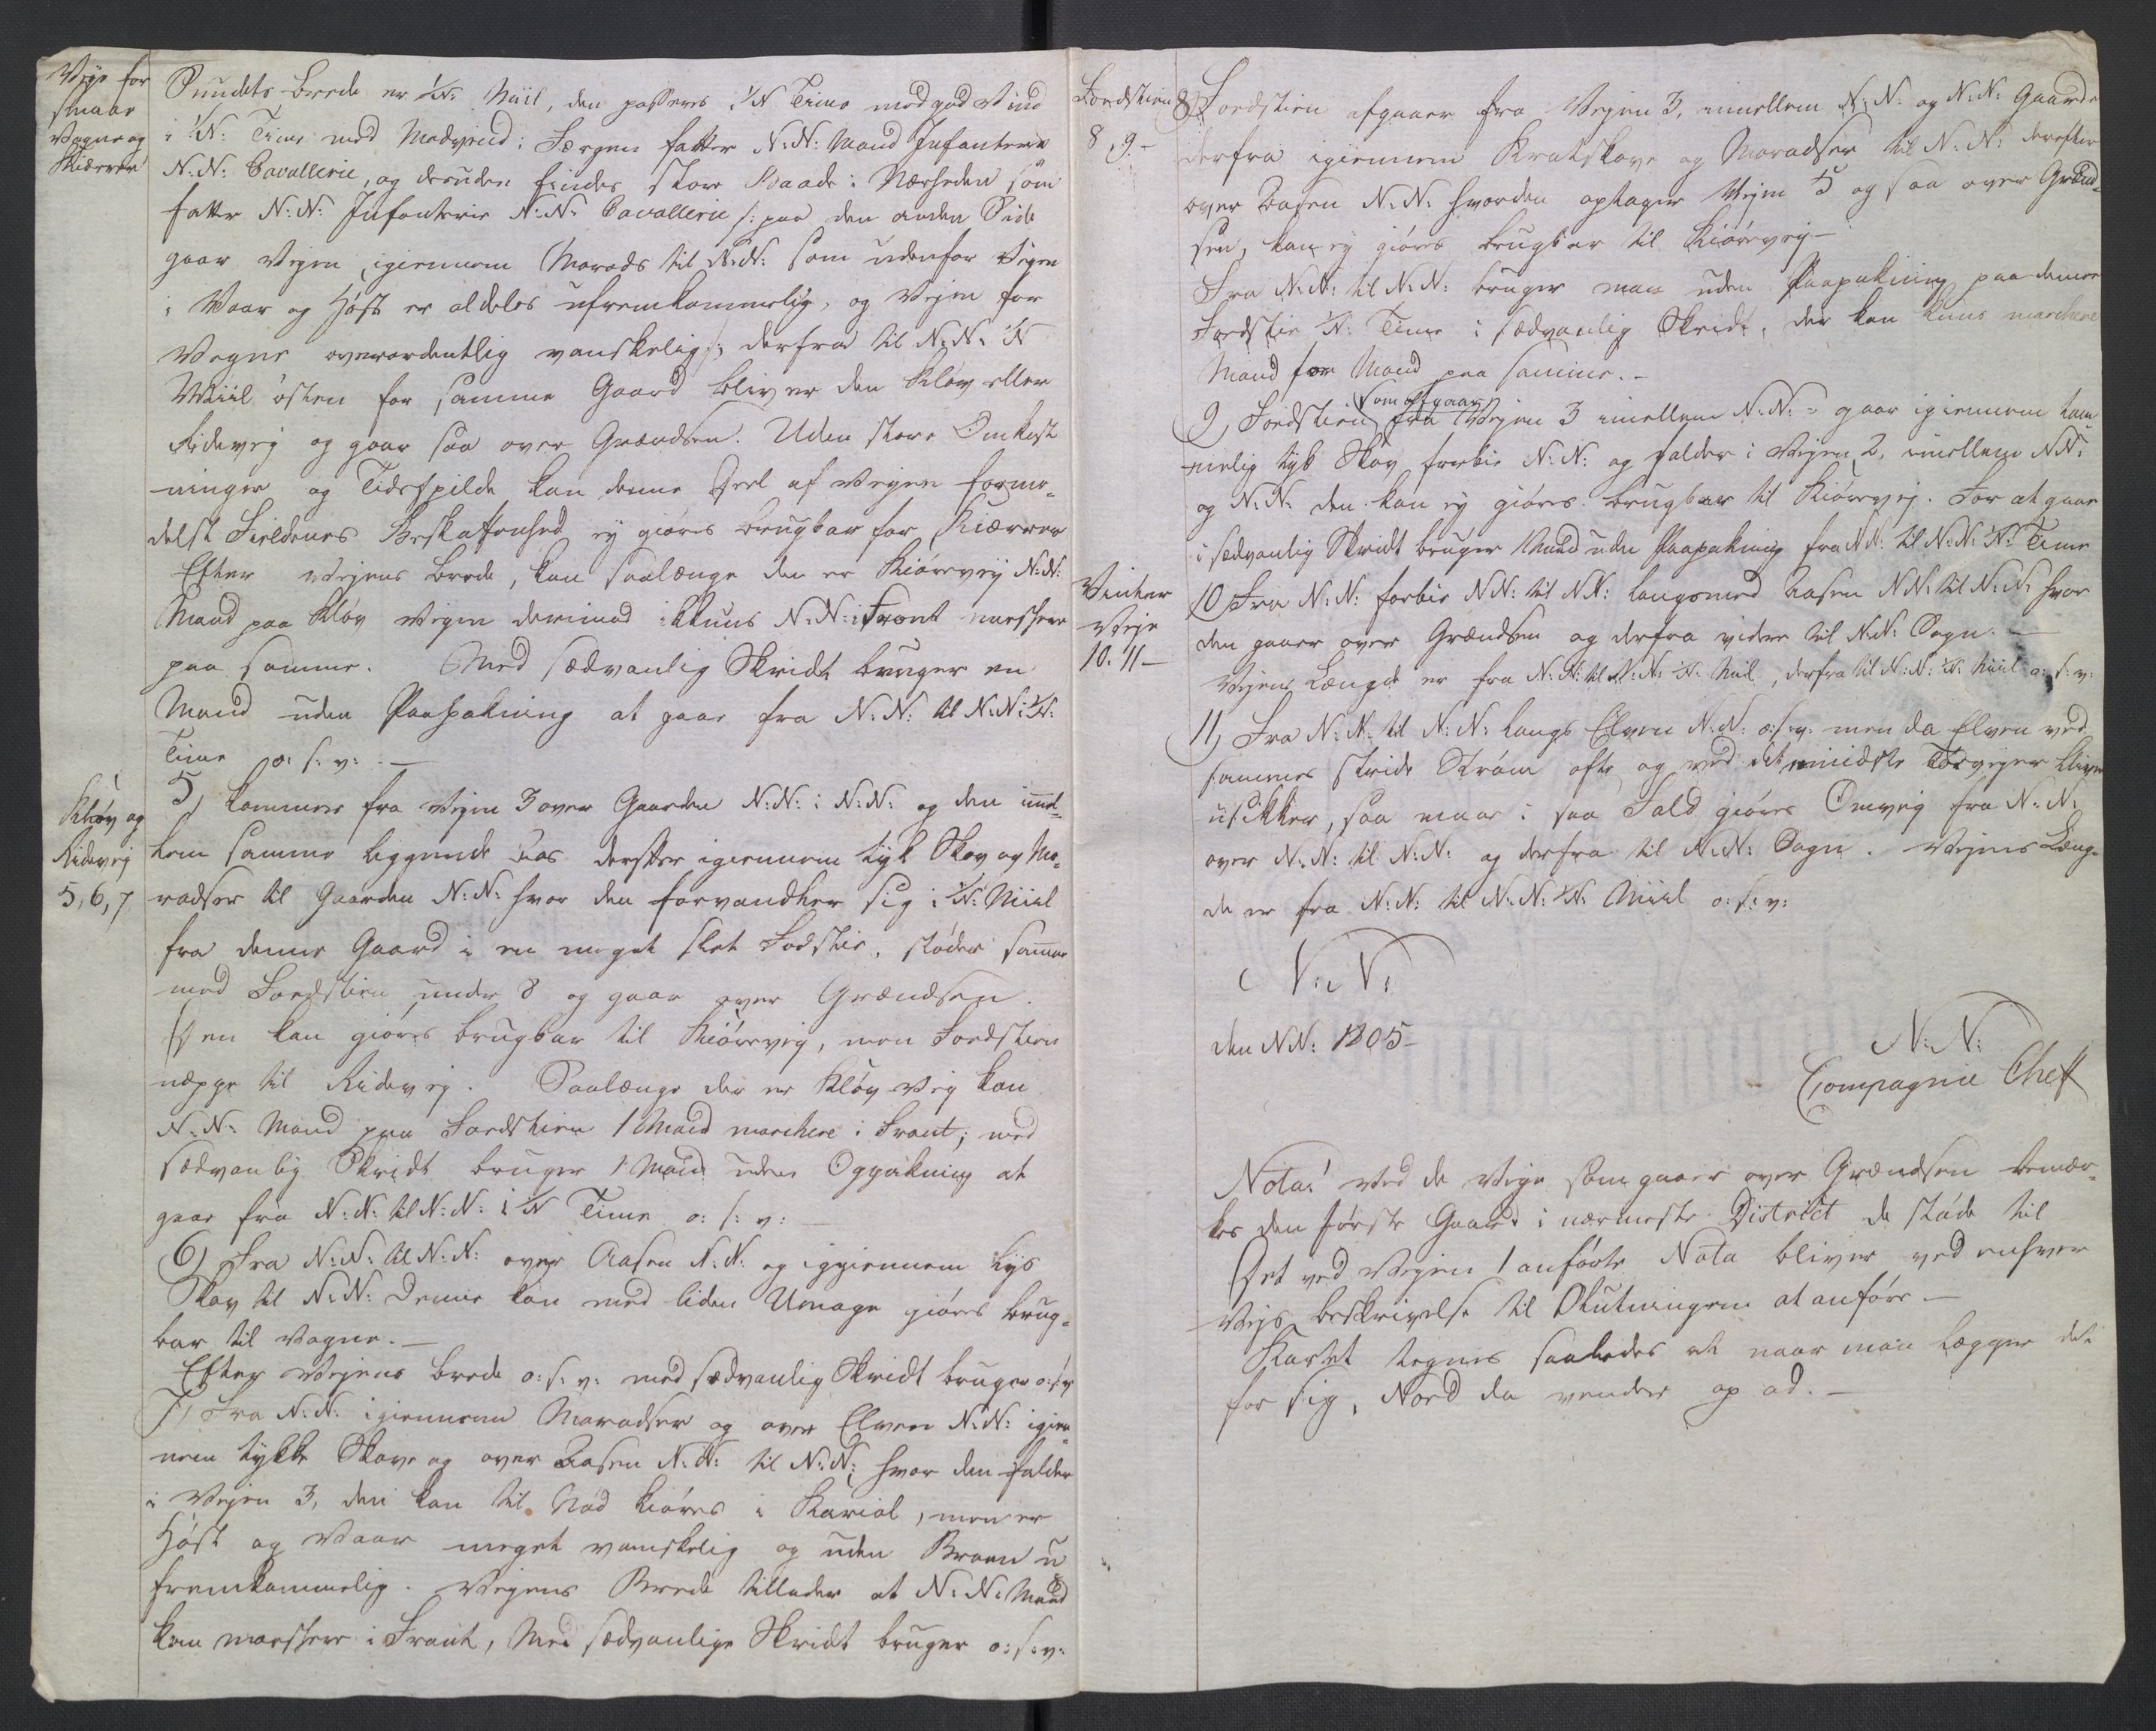 Veye for
smaae
Vogne og
Kiærrer
Sundets Brede er 1/N: Miil, den passeres i 1/N Time med god Vind
i 1/N: Time med Modvind: Færgen fatter N:N: Mand Infanterie
N:N: Cavallerie, og desuden findes store Baade i Nærheden som
fatte N:N: Infanterie N:N: Cavallerie /: paa den anden Side
gaar Vejen igiennem Morads til N:N: som udenfor Vejen
i Vaar og Høst er aldeles ufremkommelig, og Vejen for
Vogne overordentlig vanskelig :/, derfra til N:N: 1/N
Miil østen for samme Gaard bliver den Kløv eller
Ridevej og gaar saa over Grændsen. Uden store Omkost
ninger og Tidsspilde kan denne Deel af Vejen forme-
delst Fieldenes Beskaffenhed ej giøres brugbar for Kiærrer
Efter Vejens Brede, kan saalænge den er Kiørevej N:N:
Mand paa Kløv Vejen derimod ikkuns N:N: i Front marschere
paa samme. Med sædvanlig Skridt bruger en
Mand uden Paapakning at gaae fra N:N: til N:N: 1/N:
Time o: s: v: —
Kløv og
Ridevej
5, 6, 7
5) kommer fra Vejen 3 over Gaarden N:N: i N:N: og den imel-
lem samme liggende Aas derefter igiennem tyk Skov og Mo-
radser til Gaarden N:N: hvor den forvandler sig i 1/N: Miil
fra denne Gaard i en meget slet Fodstie, støder samme
med Fodstien under 8 og gaar over Grændsen.
Den kan giøres brugbar til Kiørevej, men Fodstien
neppe til Ridevej. Saalænge der er Kløv Vej kan
N:N: Mand paa Fodstien 1 Mand marchere i Front; med
sædvanlig Skridt bruger 1 Mand uden Oppakning at
gaae fra N:N: til N:N: i 1/N Time o: s: v: —
6) Fra N:N: til N:N: over Aasen N:N: og igiennem lys
Skov til N:N: Denne kan med liden Umage giøres brug-
bar til Vogne. —
Efter Vejens Brede o: s: v: med sædvanlig Skridt bruger o: s: v
7) Fra N:N: igiennem Moradser og over Elven N:N: igien-
nem tykke Skove og over Aasen N:N: til N:N: hvor den falder
i Vejen 3, den kan til Nød kiøres i Kariol, men er
Høst og Vaar meget vanskelig og uden Broen u
fremkommelig. Vejens Brede tillader at N:N: Mand
kan marschere i Front, Med sædvanlige Skridt bruger o: s: v:
Fodstien
8, 9 —
8) Fodstien afgaaer fra Vejen 3, imellem N:N: og N:N: Gaarde
derfra igiennem Kratskove og Moradser til N:N: derefter
over Aasen N:N: hvorden optager Vejen 5 og saa over Grænd-
sen, kan ej giøres brugbar til Kiørevej —
Fra N:N: til N:N: bruger man uden Paapakning paa denne
Fodstie 1/N: Time i sædvanlig Skridt, der kan kuns marchere
Mand for Mand paa samme. —
9) Fodstien som afgaar fra Vejen 3 imellem N:N: — gaar igiennem tem-
melig tyk Skov forbie N:N: og falder i Vejen 2, imellem NN:
og N:N: den kan ej giøres brugbar til Kiørevej. For at gaae
i sædvanlig Skridt bruger 1 Mand uden Paapakning fra NN: til N:N: 1/N: Time
Vinter
Veje
10. 11 —
10 Fra N:N: forbie NN: til NN: langsmed Aasen NN: til N:N: hvor
den gaaer over Grændsen og derfra videre til NN: Sogn. —
Vejens Længde er fra N:N: til N:N: 1/N: Miil, derfra til N:N: 1/N: Miil o: s: v:
11) Fra N:N: til N:N: langs Elven N:N: o: s: v: men da Elven ved
sammes stride Strøm ofte og ved det mindste Tøevejer bliver
usikker, saa maae i saa Fald giøres Omvej fra N:N:
over N:N: til N:N: og derfra til N:N: Sogn. Vejens Læng-
de er fra N:N: til N:N: 1/N: Miil o: s: v:
N: N:
den NN: 1805 —
N:N:
Compagnie Cheff
Nota! Ved de Veje som gaaer over Grændsen bemær-
kes den første Gaard i nærmeste District de støde til
Det ved Vejen 1 anførte Nota bliver ved enhver
Vejs beskrivelse til Slutningen at anføre —
Kartet tegnes saaledes at naar man lægger det
for sig, Nord da vender op ad. —